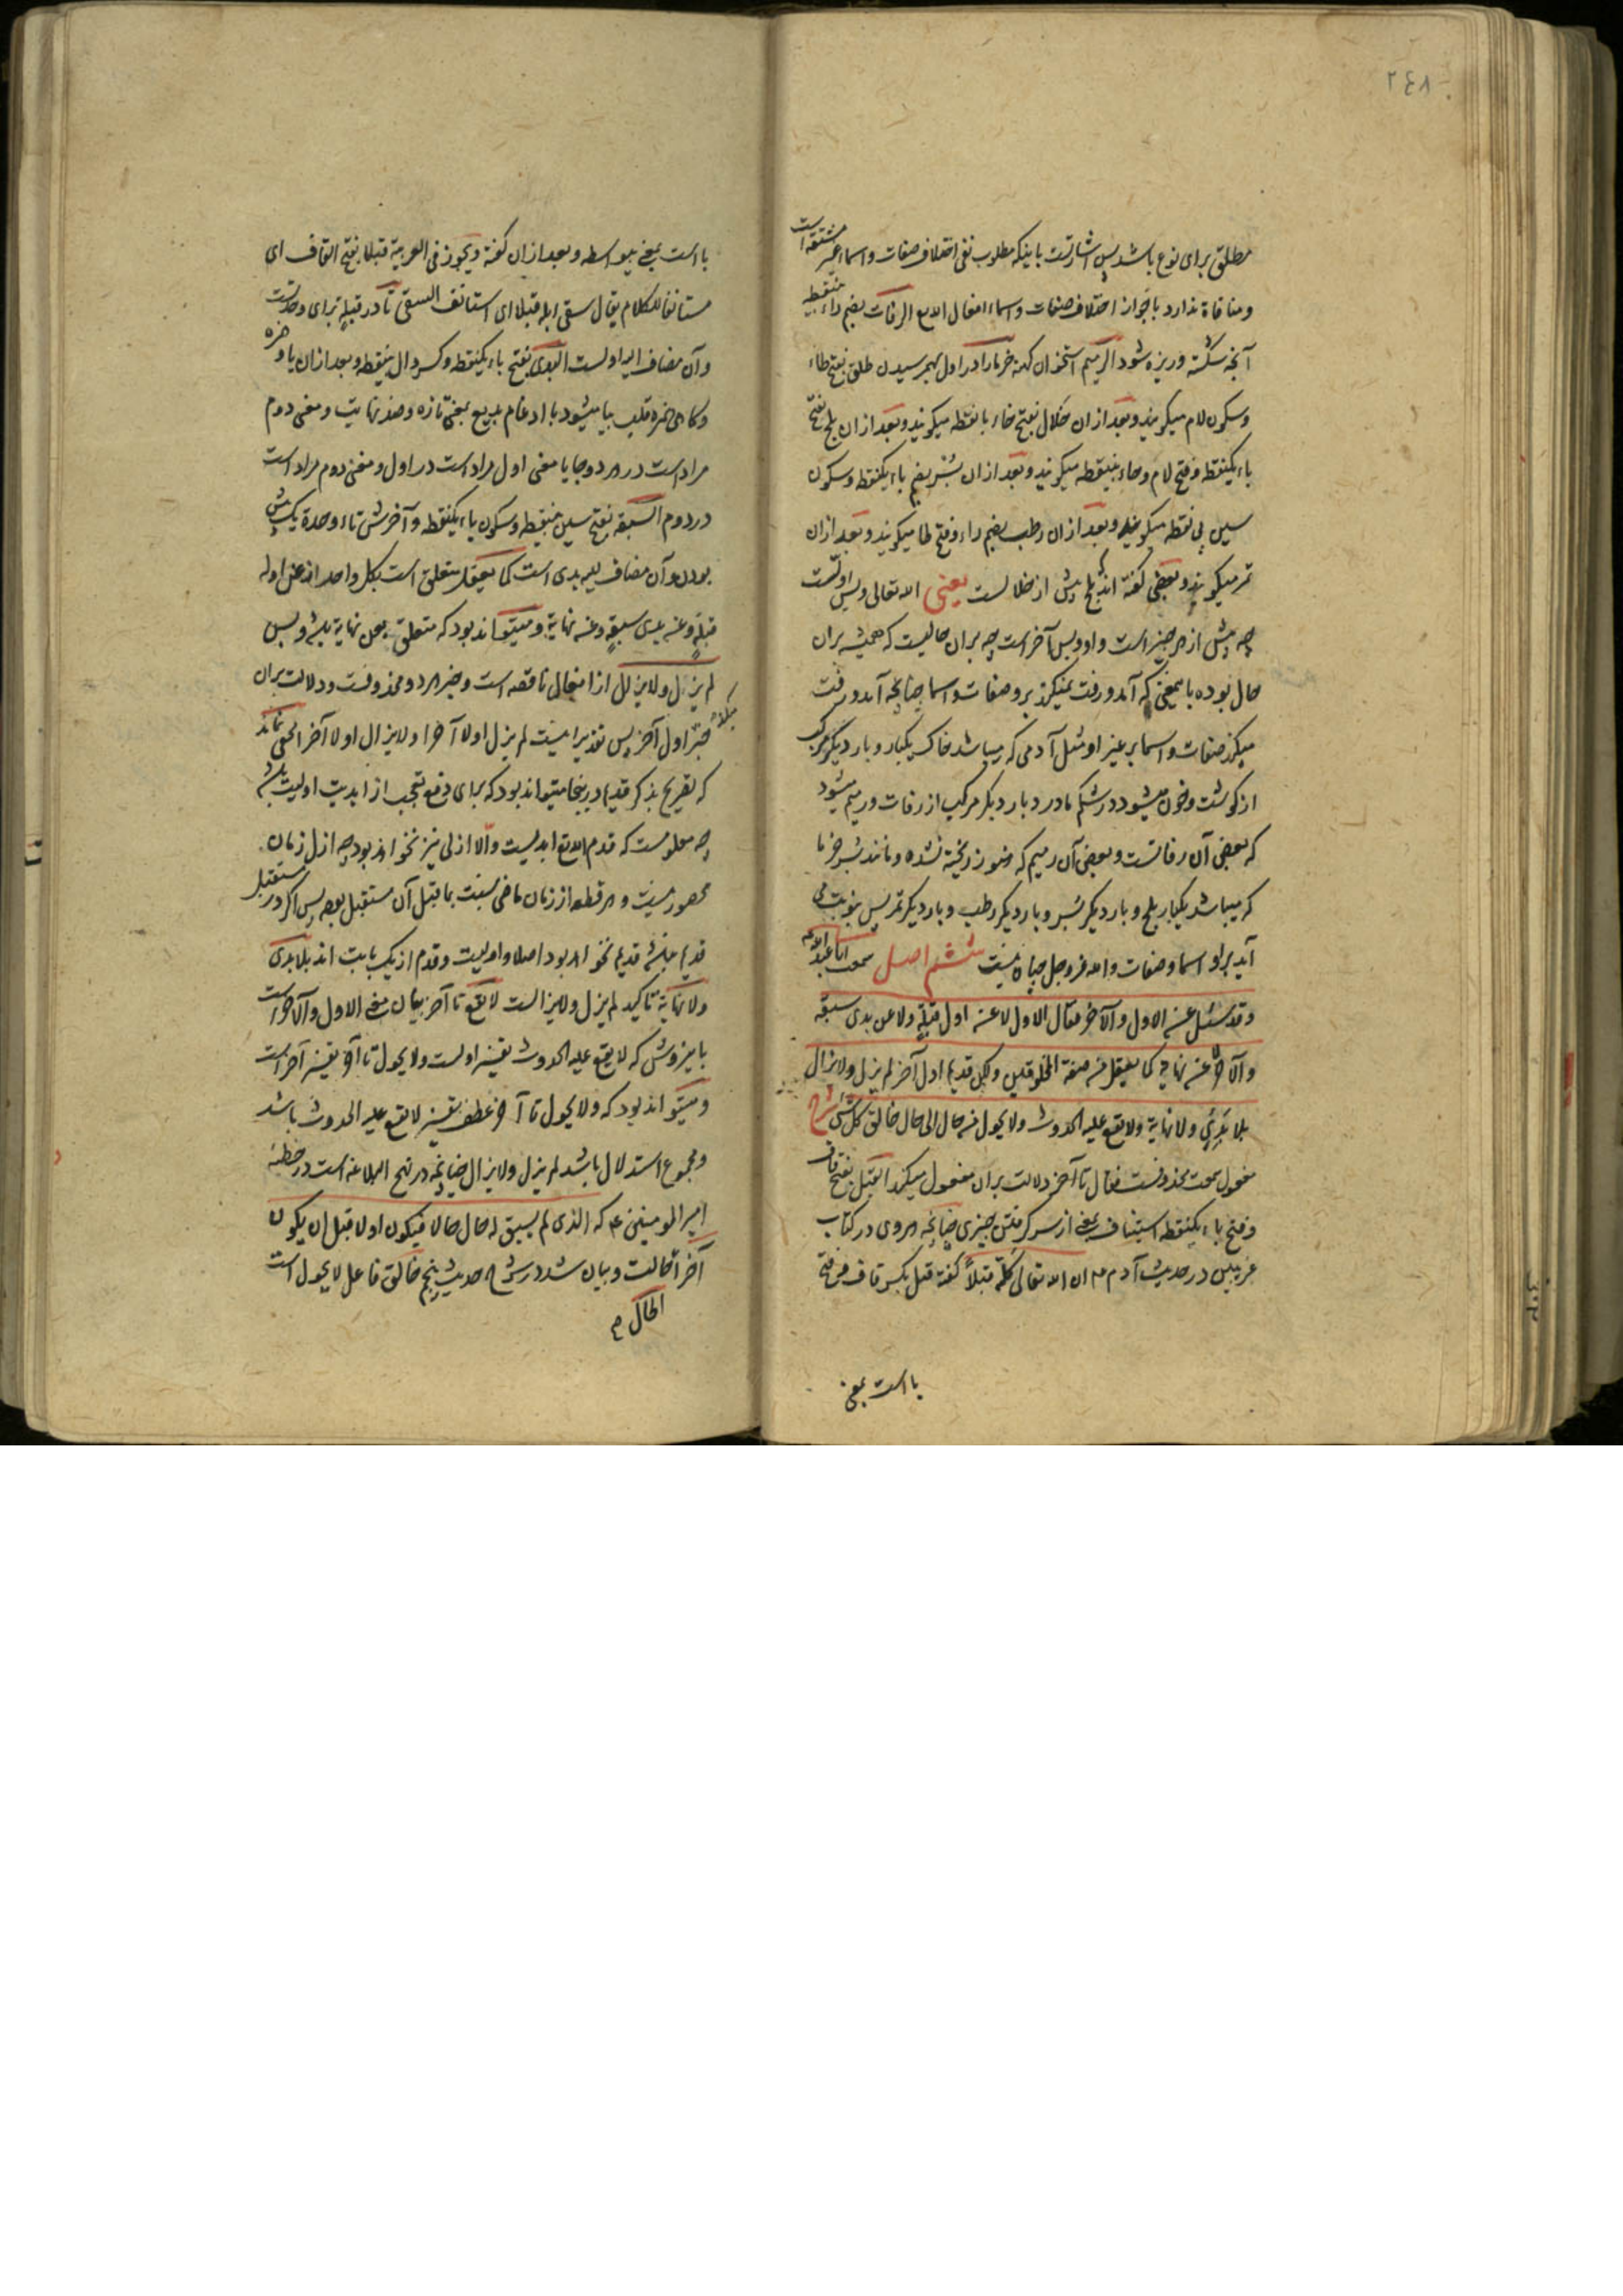 ٢٤٨
مطلق برای نوع باشد پس اشارتست باینکه مطلوب نفی اختلاف صفات و اسماء غیر مشتقه است
و منافاة ندارد با جواز اختلاف صفات و اسماء افعال الله تع الرفات بضم راء بینقطه
آنچه شکسته و ریزه شود الرمیم استخوان کهنه خرما را در اول بهم رسیدن طلق بفتح طاء
و سکون لام میکویند و بعد از ان خلال بفتح خاء بانقطه میکویند و بعد از ان بلح بفتح
باء یکنقطه و فتح لام و حاء بینقطه میکویند و بعد از ان بسر بضم باء یکنقطه و سکون
سین بی نقطه میکویند و بعد از ان رطب بضم راء و فتح طا میکویند و بعد از ان
تمر میکویند و بعضی کفته اند که بلح پیش از خلالست یعنی الله تعالی و بس اولست
چه پیش از هر چیز است و او و بس آخر است چه بران حالیست که همیشه بران
حال بوده بامعنی که آمد و رفت نمیکند برو صفات و اسما چنانچه آمد و رفت
میکند صفات و اسما بر غیر او مثل آدمی که میباشد خاک یکبار و بار دیکر مرکب
از کوشت و خون میشود در شکم مادر و بار دیکر مرکب از رفات و رمیم میشود
که بعضی آن رفاتست و بعضی آن رمیم که هنوز ریخته نشده و مانند بسر خرما
که میباشد یکبار بلح و بار دیکر بسر و بار دیکر رطب و بار دیکر تمر پس بنوبت می
آید بر او اسما و صفات و الله عز وجل چنان نیست ششم اصل سمعت ابا عبد الله ع
و قد سئل عن الاول و الآخر فقال الاول لا عن اول قبله و لا عن بدی سبقه
و الآخر لا عن نهایة کما یعقل من صفة المخلوقین ولکن قدیم اول آخر لم یزل و لا یزال
بلا بدی و لا نهایة و لا یقع علیه الحدوث و لا یحول من حال الی حال خالق کل شئ شرح
مفعول سمعت محذوفست فقال تا آخر دلالت بران مفعول میکند القبل بفتح قاف
و فتح باء یکنقطه استیناف یعنی از سر کرفتن چیزی چنانچه هروی در کتاب
غریبین در حدیث آدم ع م ان الله تعالی کلمه قبلاً کفته قبل بکسر قاف و فتح
با است بمعنی
با است بمعنی بیواسطه و بعد از ان کفته و یجوز فی العربیة قبلا بفتح القاف ای
مستانفا للکلام یقال سقی ابله قبلا ای استانف السقی تا در قبله برای وحدتست
و آن مضاف الیه اولست البدی بفتح باء یکنقطه و کسر دال بینقطه و بعد از ان یا و همزه
و کاهی همزه قلب بیا میشود با ادغام بدیع بمعنی تازه و ضد نهایت و معنی دوم
مراد است در هر دو جا یا معنی اول مراد است در اول و معنی دوم مراد است
در دوم السبقه بفتح سین بینقطه و سکون باء یکنقطه و آخرش تاء وحدة یک پیش
بودن و آن مضاف الیه بدی است کما یعقل متعلق است بکل واحد از عن اوله
قبلة و عن بدی سبقه و عن نهایة و میتواند بود که متعلق بعن نهایة باشد و بس
لم یزل و لا یزال از افعال ناقصه است و خبر هر دو محذوفست و دلالت بران
میکند خبر اول آخر پس تقدیر اینست لم یزل اولا آخرا و لا یزال اولا آخرا مخفی نماند
که تصریح بذکر قدیم درینجا میتواند بود که برای دفع تعجب از ابدیت اولیت باشد
چه معلومست که قدم الله تع ابدیست و الا ازلی نیز نخواهد بود چه ازل زمان
محصور نیست و هر قطعه از زمان ماضی نسبت بماقبل آن مستقبل بوده پس اکر در مستقبل
قدیم نباشد قدیم نخواهد بود اصلا و اولیت و قدم از یک بابت اند بلا بدی
و لا نهایة تاکید لم یزل و لا یزالست لا یقع تا آخر بیان معنی الاول و الآخر است
باینروش که لا یقع علیه الحدوث تفسیر اولست و لا یحول تا آخر تفسیر آخر است
و میتواند بود که و لا یحول تا آخر عطف تفسیر لا یقع علیه الحدوث باشد
و مجموع استدلال باشد لم یزل و لا یزال چنانچه در نهج البلاغه است در خطبه
امیر المومنین ع که الذی لم یسبق له حال حالا فیکون اولا قبل ان یکون
آخرا خالقت و بیان شد در شرح حدیث پنجم خالق فاعل لا یحول است